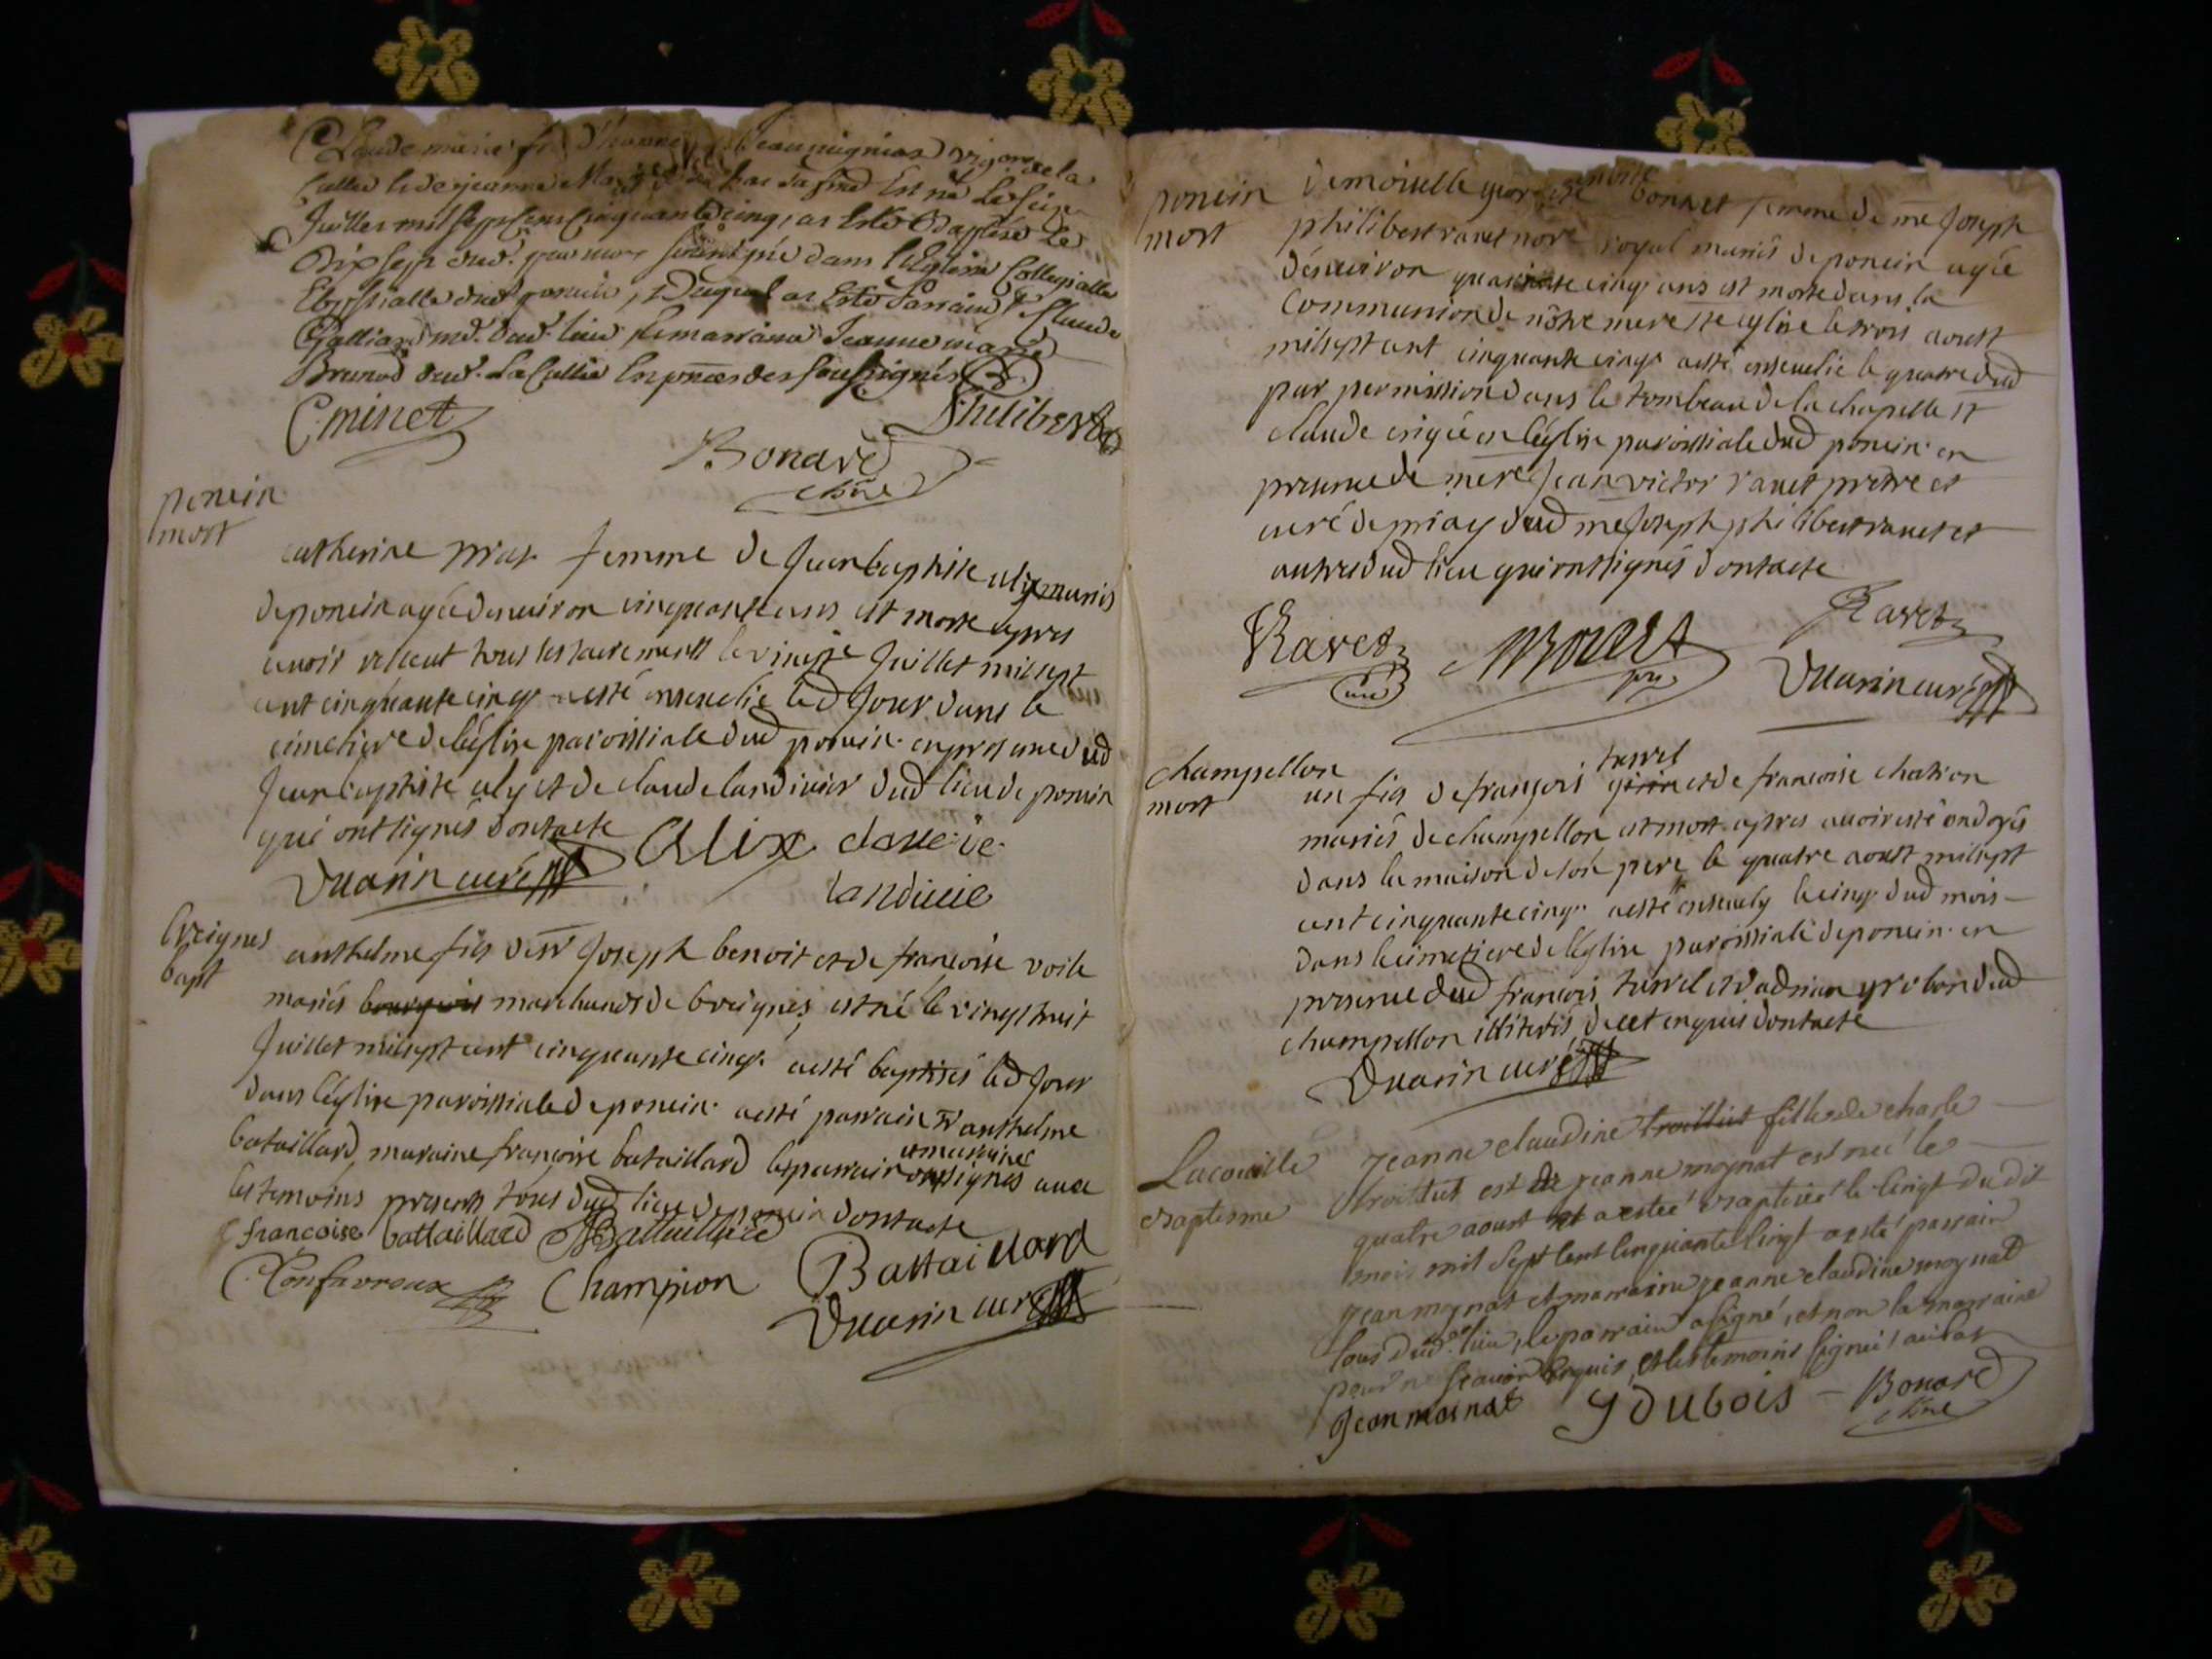 Claude marie
Juillet mil sept Cens Cinquante Cinq, as Esté Baptisé Le
Dix sept dud. par moy soussigné dans l'Eglise Collegialle
dud poncin, Duquel as Esté Parrain Sr Claude
Galliard md. dud. lieu La marraine Jeanne marie
Brunod dud. La Cullia En pnces des soussignés
C minet
Philibert
Bonard
chne
poncin
mort
catherine priay femme de Jean baptiste alix mariés
de poncin agée denviron cinquante ans est morte apres
avoir receut tous les sacrements le vingt Juillet mil sept
cent cinquante cinq a esté ensevelie led Jour dans le
cimetiere de léglise paroissiale dud poncin en presence dud
Jean baptiste alix et de claude landivier dud lieu de poncin
qui ont signés dontacte
Duarin curé
Alix
landivie
breignes
bapt
anthelme fils de sr Joseph benoit et de francoise voile
mariés bourgeois marchands de breignes, est né le vingt huit
Juillet mil sept cent cinquante cinq a esté baptisés led Jour
dans léglise paroissiale de poncin a esté parrain sr anthelme
bataillard, maraine francoise bataillard le parrain et maraine ont signés avec
les temoins presents tous dud lieu de poncin dontacte
francoise battaillard
Battaillard
Confavreux
Champion
Duarin curé
poncin
mort
Demoiselle bonnet femme de me Joseph
philibert ravet nore royal mariés de poncin agée
denviron quarante cinq ans est morte dans la
communion de nôtre mere ste eglise le trois aoust
mil sept cent cinquante cinq a esté ensevelie le quatre dud
par permission dans le tombeau de la chapelle st
claude erigée en léglise paroissiale dud poncin en
presence de mere Jean victor ravet prêtre et
curé de priay dud me Joseph philibert ravet et
autres dud lieu qui ont signés dontacte
Ravet
curé
Ravet
Duarin curé
champellon
mort
un fils de françois turrel et de francoise chatron
mariés de champellon est mort apres avoir esté ondoyés
dans la maison de son pere le quatre aoust mil sept
cent cinquante cinq a esté ensevely le cinq dud mois
dans le cimetiere de léglise paroissiale de poncin en
presence dud francois turrel et d'adrian grobon dud
champellon illiterés de cet enquis dontacte
Duarin curé
Lacouille
Baptesme
Jeanne claudine troilliet fille de charle
troilliet est de jeanne moynat est neé le
quatre aoust et a estee Baptisee le Cinqt du dit
mois mil sept Cent Cinquante Cinqt a esté parrain
jean moynat et marraine jeanne claudine moynat
tous dud. lieu, le parrain a signé, et non la marraine
pour ne scavoir Enquis, et les temoins signé! au bas
Jean moinat
J Dubois
Bonard
chne